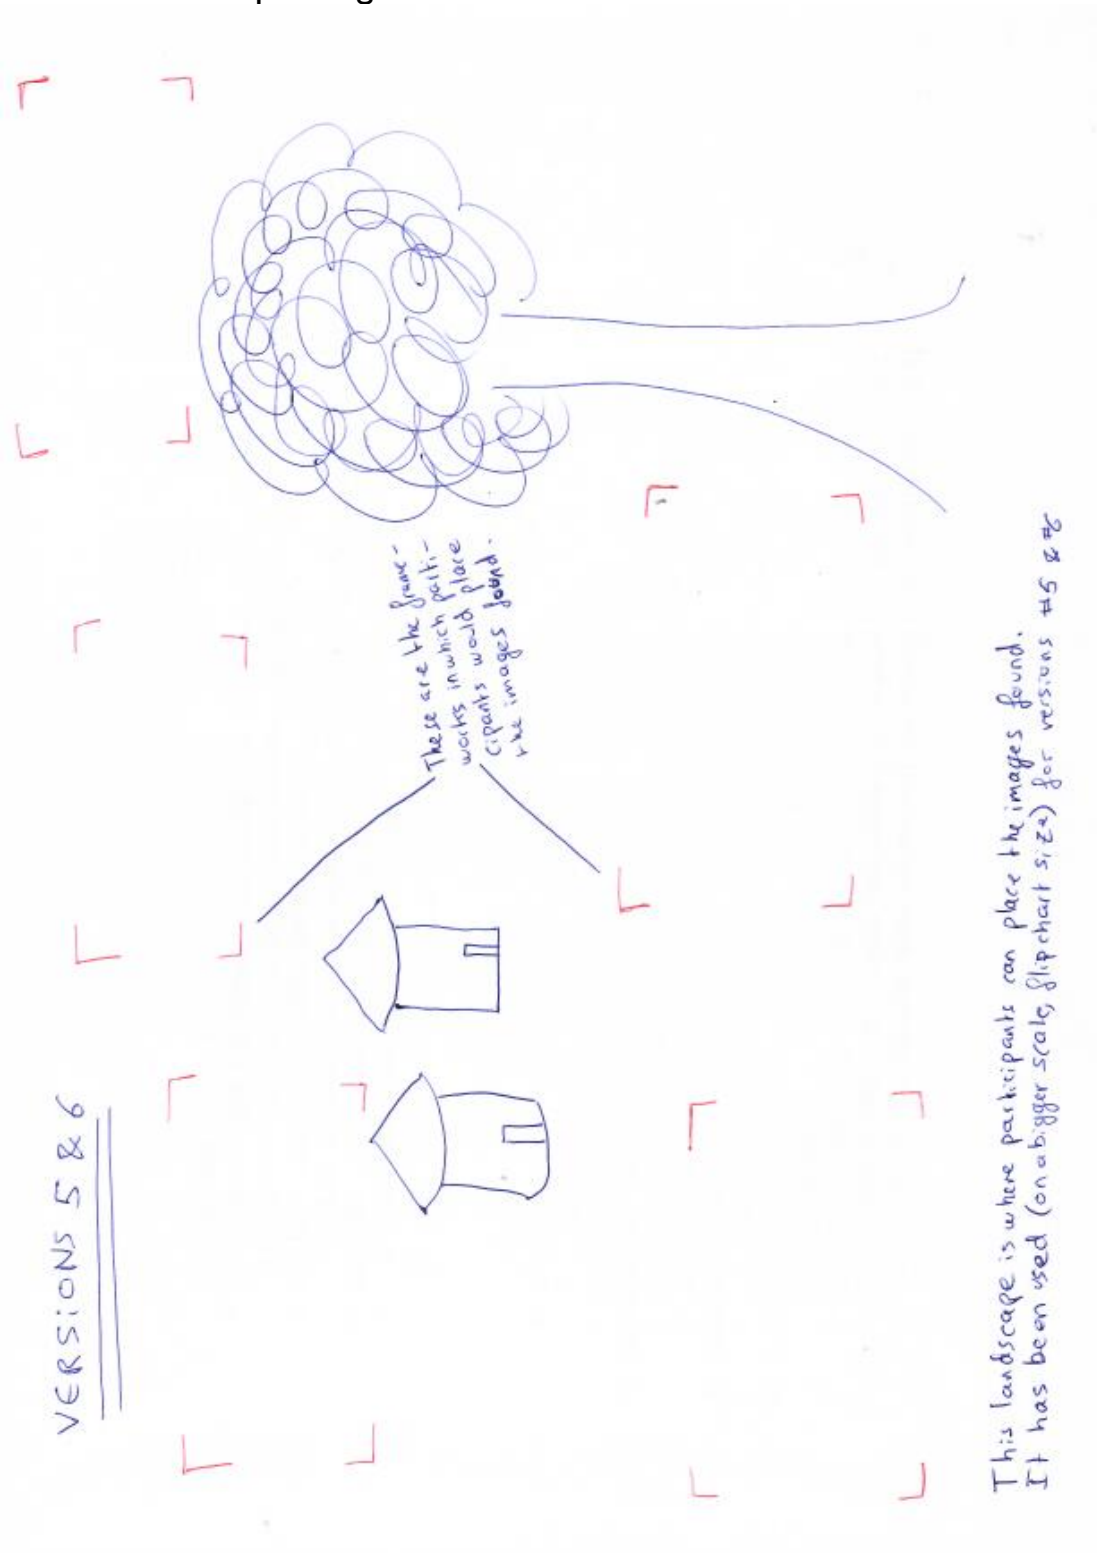 VERSIONS 5 & 6
These are the frame-
works in which parti-
cipants would place
the images found.
This landscape is where participants can place the images found.
It has been used (on a bigger scale, flipchart size) for versions #5 &